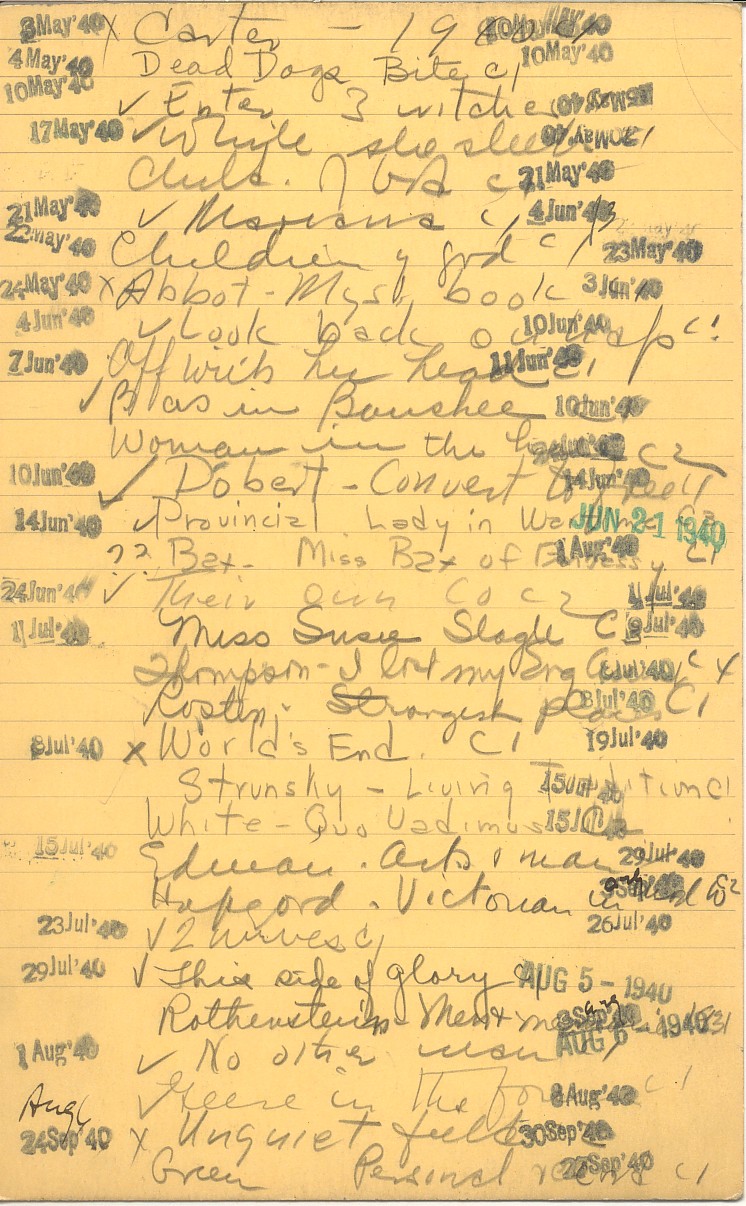 3 May '40 x Carter - 19 10 May '40
4 May '40 Dead Dogs Bite c1 10 May '40
10 May '40 ✓ Enter 3 witches 25 May '40
17 May '40 ✓ While she sleeps 20 May '40
c1 21 May '40
21 May '40 ✓ Mariana c1 4 Jun '40
22 May '40 Children of god c1 23 May '40
24 May '40 x Abbot - Myst book 3 Jun '40
4 Jun '40 ✓ Look back on c1 10 Jun '40
7 Jun '40 Off with her head c1 11 Jun '40
✓ B as in Banshee 10 Jun '40
Woman in the Jun '40 c2
10 Jun '40 ✓ Dobert - Convert to 14 Jun '40
14 Jun '40 ✓ Provincial Lady in Wartime c2 JUN 21 1940
?? Bax - Miss Bax of Embassy c1 1 Aug '40
24 Jun '40 ✓ Their own Co c2 1 Jul '40
1 Jul '40 Miss Susie Slagle c Jul '40
Thompson - I lost my Eng c 8 Jul '40
Rosten - Strangest places c1 8 Jul '40
8 Jul '40 x World's End. c1 19 Jul '40
Strunsky - Living Tradition c1 15 Jul '40
White - Quo Vadimus 15 Jul '40
15 Jul '40 Edman. Arts & man 29 Jul '40
Hapgood. Victorian in mod W c2 3 Sep '40
23 Jul '40 ✓ 2 wives c1 26 Jul '40
29 Jul '40 ✓ This side of glory AUG 5 - 1940
Rothenstein - Men & mem 3 Sep '40
1 Aug '40 ✓ No other man AUG 6 - 1940
Aug 6 ✓ Geese in the forum c1 8 Aug '40
24 Sep '40 x Unquiet field 30 Sep '40
Green Personal record c1 27 Sep '40